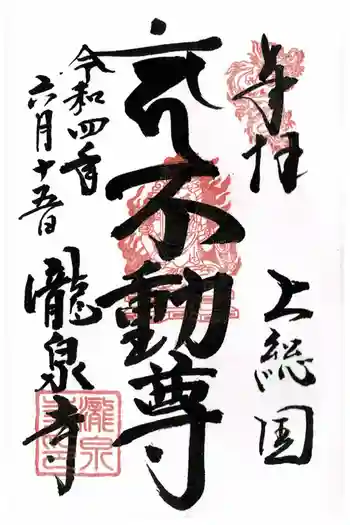 奉拝
上総国
不動尊
令和四年
六月十五日
瀧泉寺